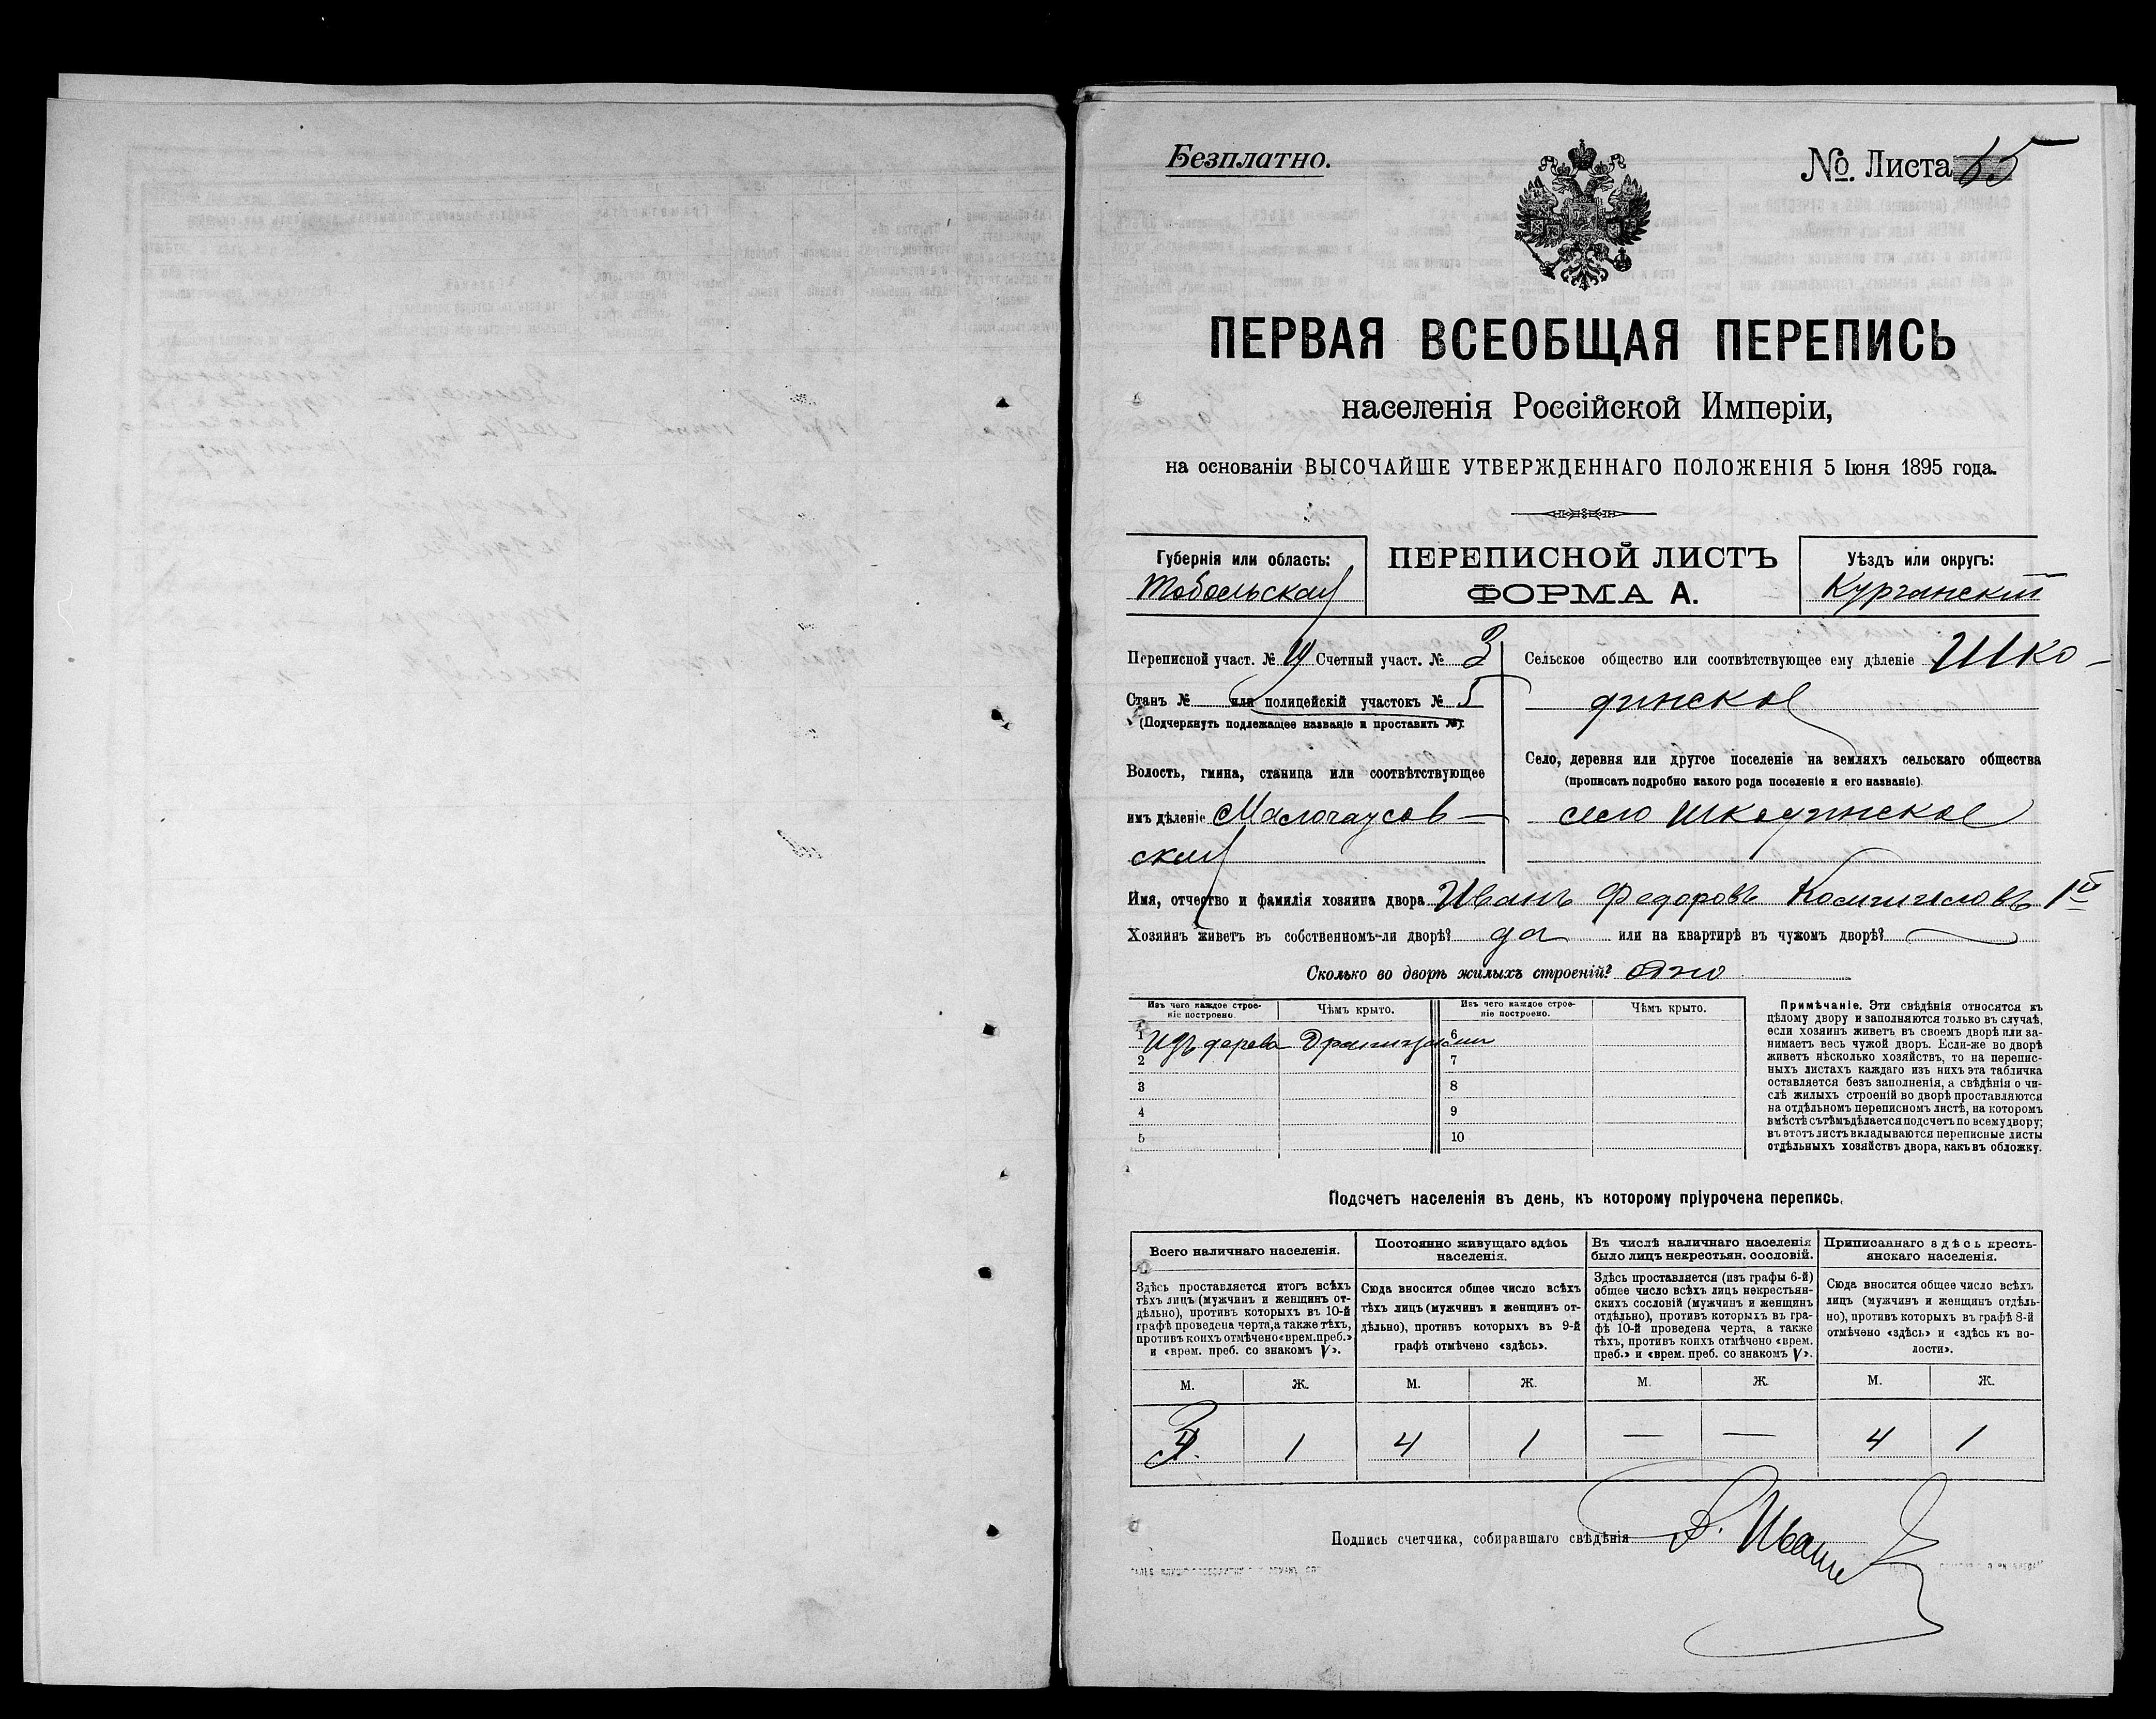 Безплатно.
№ Листа 65
ПЕРВАЯ ВСЕОБЩАЯ ПЕРЕПИСЬ
населенія Россійской Имперіи,
на основаніи ВЫСОЧАЙШЕ УТВЕРЖДЕННАГО ПОЛОЖЕНІЯ 5 Іюня 1895 года.
Губернія или область:
Тобольская
ПЕРЕПИСНОЙ ЛИСТЪ
ФОРМА А.
Уѣздъ или округъ:
Курганскій
Переписной участ. № Счетный участ. № 3
Станъ № или полицейскій участокъ № 5
(Подчеркнуть подлежащее названіе и проставить №).
Волость, гмина, станица или соотвѣтствующее
имъ дѣленіе Малочаусов-
ская
Сельское общество или соотвѣтствующее ему дѣленіе Шко-
динское
Село, деревня или другое поселеніе на земляхъ сельскаго общества
(прописать подробно какого рода поселеніе и его названіе).
село Шкодинское
Имя, отчество и фамилія хозяина двора Иванъ Федоровъ 1й
Хозяинъ живетъ въ собственномъ-ли дворѣ? да или на квартирѣ въ чужомъ дворѣ?
Сколько во дворѣ жилыхъ строеній? одно
Изъ чего каждое строе-
ніе построено.
Чѣмъ крыто.
Изъ чего каждое строе-
ніе построено.
Чѣмъ крыто.
1 Изъ дерева 6
2 7
3 8
4 9
5 10
Примѣчаніе. Эти свѣдѣнія относятся къ
цѣлому двору и заполняются только въ случаѣ,
если хозяинъ живетъ въ своемъ дворѣ или за-
нимаетъ весь чужой дворъ. Если-же во дворѣ
живетъ нѣсколько хозяйствъ, то на перепис-
ныхъ листахъ каждаго изъ нихъ эта табличка
оставляется безъ заполненія, а свѣдѣнія о чи-
слѣ жилыхъ строеній во дворѣ проставляются
на отдѣльномъ переписномъ листѣ, на которомъ
вмѣстѣ съ тѣмъ дѣлается подсчетъ по всему двору;
въ этотъ листъ вкладываются переписные листы
отдѣльныхъ хозяйствъ двора, какъ въ обложку.
Подсчетъ населенія въ день, къ которому пріурочена перепись.
Всего наличнаго населенія.
Здѣсь проставляется итогъ всѣхъ
тѣхъ лицъ (мужчинъ и женщинъ от-
дѣльно), противъ которыхъ въ 10-й
графѣ проведена черта, а также тѣхъ,
противъ коихъ отмѣчено «врем. преб.»
и «врем. преб. со знакомъ V».
Постоянно живущаго здѣсь
населенія.
Сюда вносится общее число всѣхъ
тѣхъ лицъ (мужчинъ и женщинъ от-
дѣльно), противъ которыхъ въ 9-й
графѣ отмѣчено «здѣсь».
Въ числѣ наличнаго населенія
было лицъ некрестьян. сословій.
Здѣсь проставляется (изъ графы 6-й)
общее число всѣхъ лицъ некрестьян-
скихъ сословій (мужчинъ и женщинъ
отдѣльно), противъ которыхъ въ гра-
фѣ 10-й проведена черта, а также
тѣхъ, противъ коихъ отмѣчено «врем.
преб.» и «врем. преб. со знакомъ V».
Приписаннаго здѣсь кресть-
янскаго населенія.
Сюда вносится общее число всѣхъ
лицъ (мужчинъ и женщинъ отдѣль-
но), противъ которыхъ въ графѣ 8-й
отмѣчено «здѣсь» и «здѣсь къ во-
лости».
М. Ж. М. Ж. М. Ж. М. Ж.
1 4 1 — — 4 1
Подпись счетчика, собиравшаго свѣдѣнія